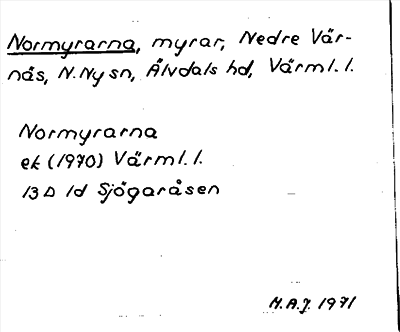 Normyrarna, myrar, Nedre Vär-
nås, N.Ny sn, Älvdals hd, Värml. l.
Normyrarna
ek (1970) Värml. l.
13 D 1d Sjögaråsen
M.A.J. 1971